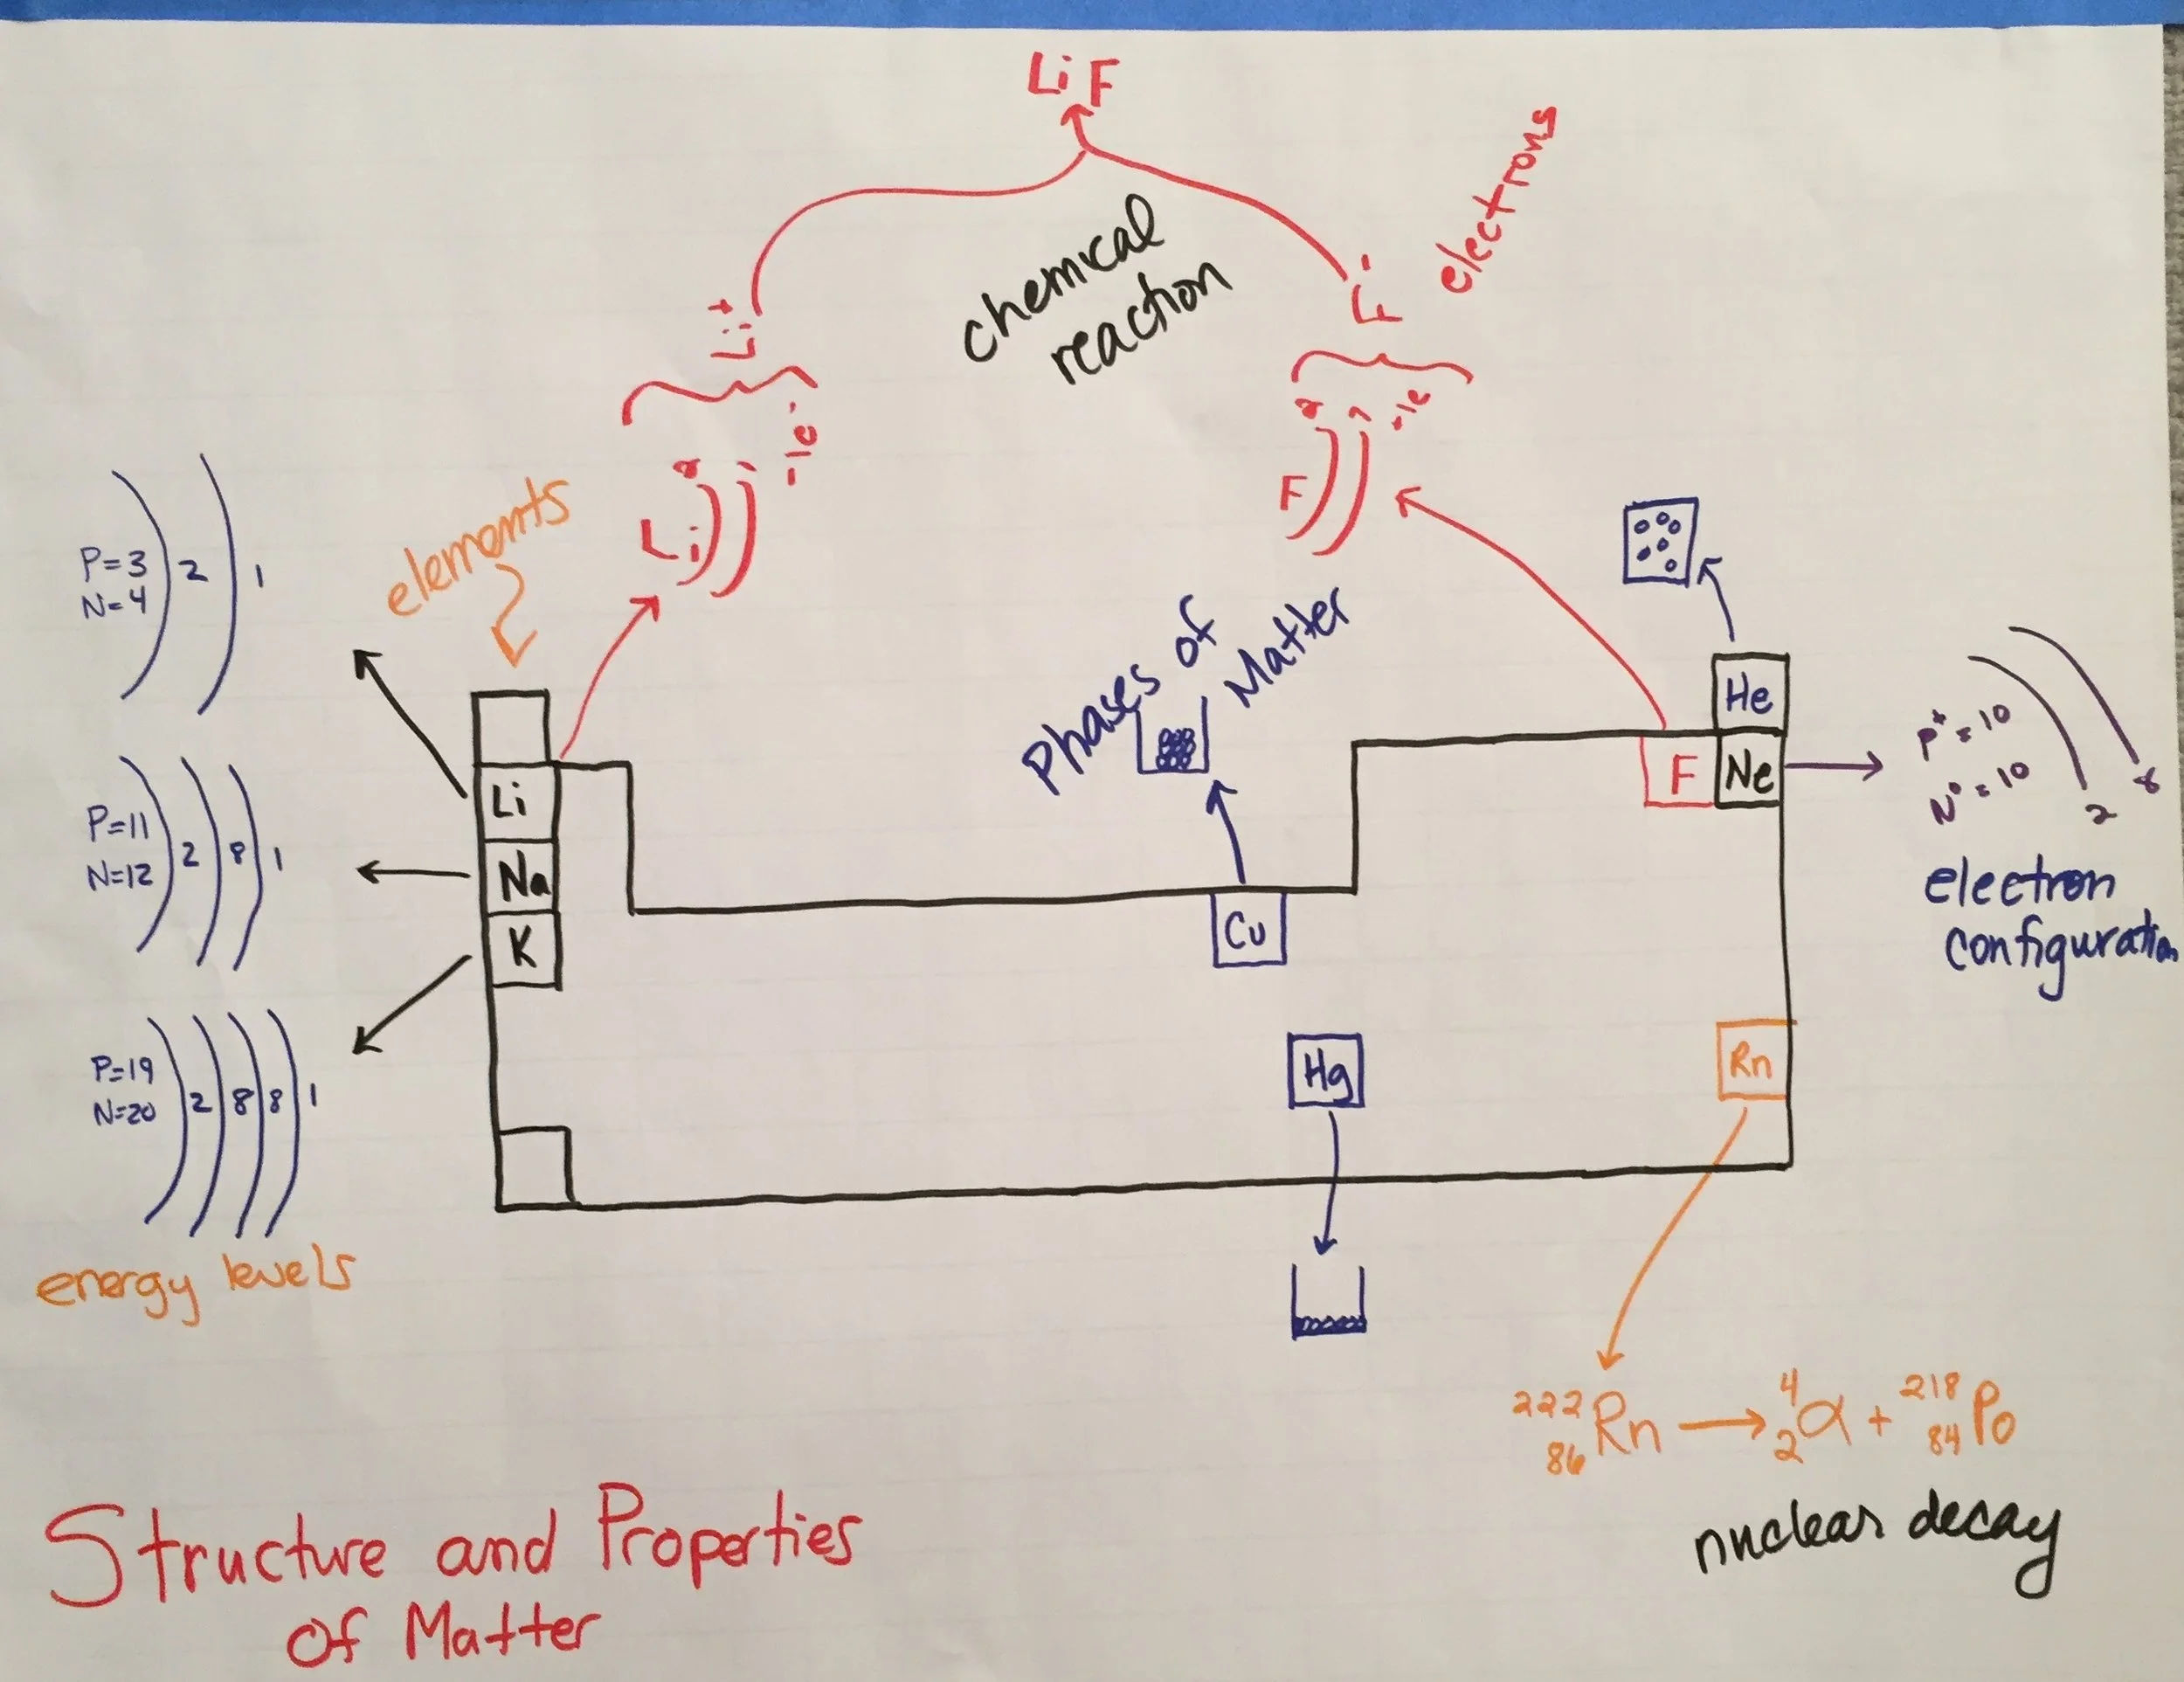 LiF
electrons
chemical
reaction
Li+
F-
-1e-
-1e
2 1
2 7
Li
F
elements
P=3
N=4
2
1
Phases of
Matter
He
Li
F
Ne
P+ = 10
N° = 10
2
8
electron
configuration
P=11
N=12
2
8
1
Na
K
Cu
Hg
Rn
P=19
N=20
2
8
8
1
energy levels
222
86
Rn → 4
2
α + 218
84
Po
nuclear decay
Structure and Properties
of Matter